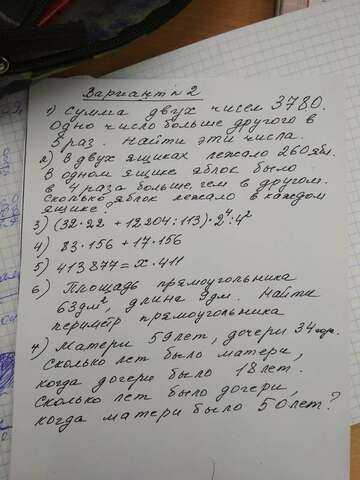 Вариант № 2
1) Сумма двух чисел 3780.
Одно число больше другого в
5 раз. Найти эти числа.
2) В двух ящиках лежало 260 ябл.
В одном ящике яблок было
в 4 раза больше, чем в другом.
Сколько яблок лежало в каждом
ящике?
3) (32·22 + 12204:113)·2⁴:4²
4) 83·156 + 17·156
5) 413877 = x·411
6) Площадь прямоугольника
63дм², длина 9дм. Найти
периметр прямоугольника
7) Матери 59лет, дочери 34
Сколько лет было матери,
когда дочери было 18лет.
Сколько лет было дочери,
когда матери было 50лет?